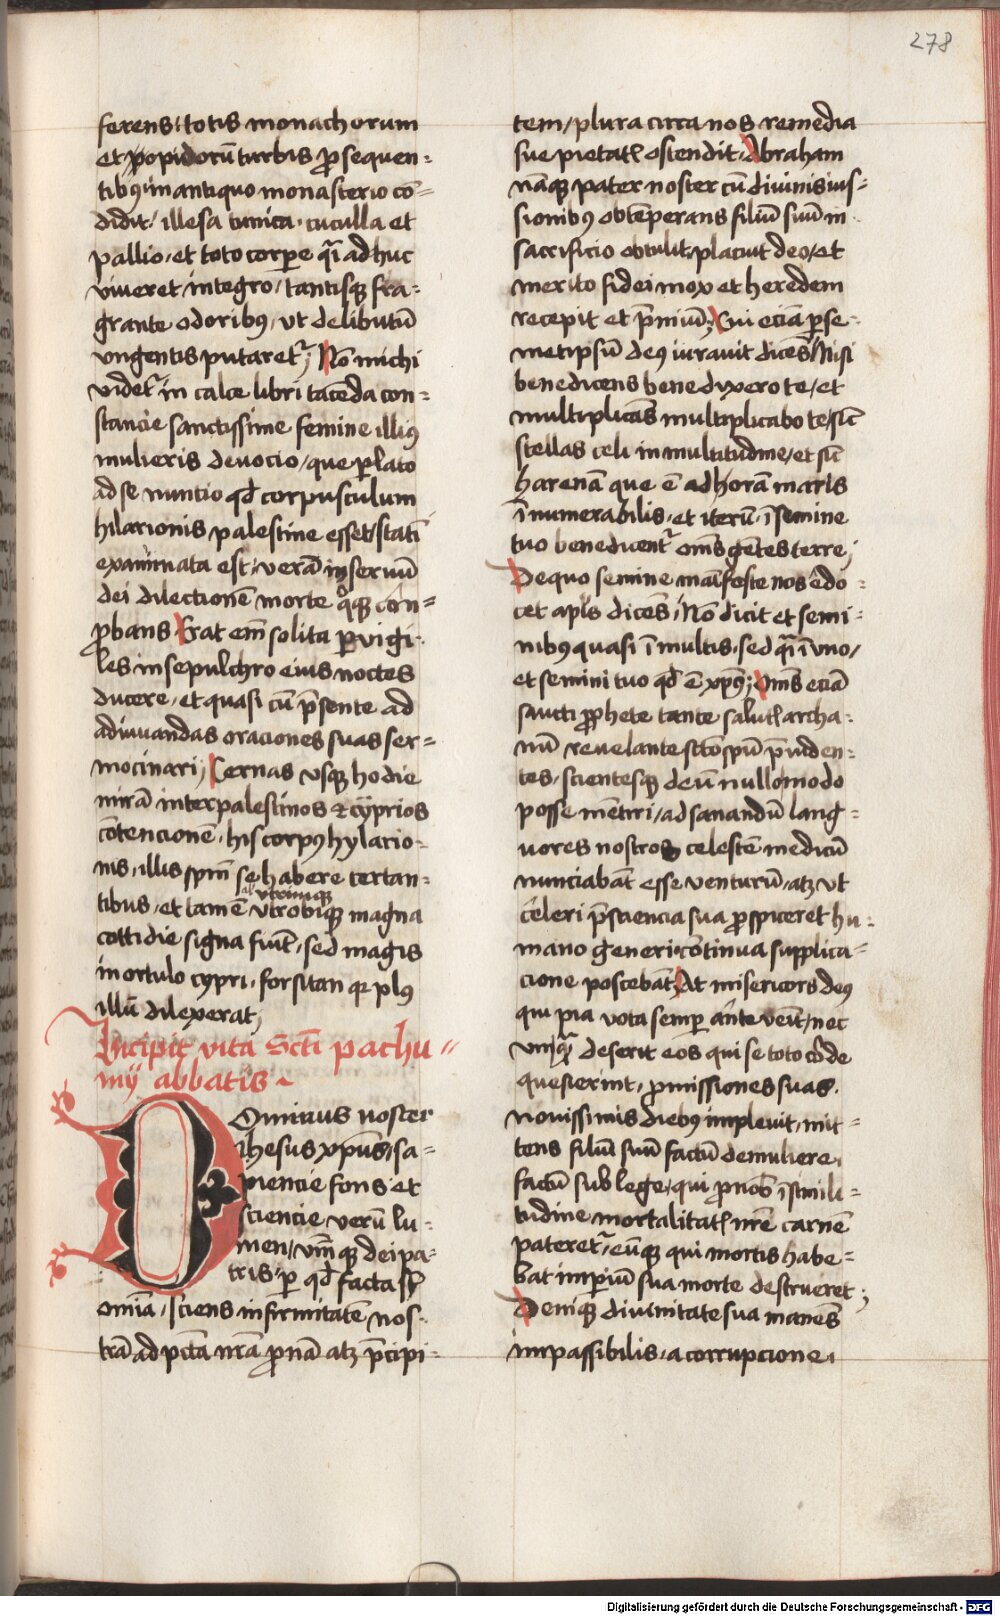 278
ferens / totis monachorum
et popidorū turbis ꝓsequen=
tibꝰ in antiquo monasterio cō=
didit / illesa tunica · cuculla et
pallio / et toto corꝑe q̄i adhuc
viueret integro / tantisqꝫ fra=
grante odoribꝰ / vt delibutū
vngentis putaretᷣ ; Nō michi
videtᷣ in calce libri tacēda con=
stancie sanctissime femine illiꝰ
mulieris deuocio / que ꝑlato
ad se nuntio qd̄ corpusculum
hilarionis palestine esset / statī
exanimata est / verā in seruū
dei dilectionē morte qͦqꝫ con=
ꝓbans · Erat em̄ solita ꝑvigi=
les in sepulchro eius noctes
ducere / et quasi cū p̄sente ad
adiuuandas oraciones suas ser=
mocinari ; Cernas vsqꝫ hodie
mirā inter palestinos & cyprios
cōtencionē / his corpꝰ hylario=
nis / illis spm̄ se habere certan=
al utrimqꝫ
tibus / et tamē vtrobiqꝫ magna
cottidie signa fiūt / sed magis
in ortulo cypri / forsitan qꝛ plꝰ
illū dilexerat ;
Incipit vita Scti pachu=
mij abbatis ~
Ominus noster
ihesus xp̄us / sa=
piencie fons et
sciencie verū lu=
men / vm̄ qꝫ dei pa=
tris / ꝑ qd̄ facta sūt
omīa / sciens infirmitatē nos=
trā ad pcta nrā ꝓnā atꝫ p̄cipi=
tem / plura circa nos remedia
sue pietatꝭ ostendit · Abraham
nāqꝫ pater noster cū diuinis ius=
sionibꝰ obtēperans filiū suū in
sacrificio obtulit / placuit deo / et
merito fidei mox et heredem
recepit et p̄miū ; Cui eciā ꝑ se=
metipsū deꝰ iurauit dicēs / Nisi
benedicens benedixero te / et
multiplicās multiplicabo te / sic̄
stellas celi in multitudine / et sic̄
harenā que ē ad horā maris
īnumerabilis / et iterū / ī semine
tuo benedicentᷣ om̄s gētes terre ;
De quo semine māifeste nos edo=
cet apls dicēs / Nō dicit et semi=
nibꝰ quasi ī multis / sed q̄i ī vno /
et semini tuo qd̄ ē xp̄ꝰ ; Om̄s eciā
sancti ꝓphete tante salutꝭ archa=
nū reuelante sctō spū p̄uiden=
tes / scientesqꝫ deū nullomodo
posse mētiri / ad sanandū lang=
uores nostros celestē medicū
nunciabāt esse venturū / atꝫ vt
celeri p̄sciencia sua ꝓspiceret hu=
mano generi cōtinua supplica=
cione poscebāt ; At misericors deꝰ
qui pia vota semꝑ ante venit / nec
vmqͣ deserit eos qui se toto corde
quesierint / ꝓmissiones suas
nouissimis diebꝰ impleuit / mit=
tens filiū suū factū de muliere /
factū sub lege / qui ꝓ nob̄ ī simili=
tudine mortalitatꝭ nr̄e carnē
pateretᷣ / eūqꝫ qui mortis habe=
bat imꝑiū sua morte destrueret ;
Deniqꝫ diuinitate sua manēs
impassibilis / a corrupcione /
Digitalisierung gefördert durch die Deutsche Forschungsgemeinschaft - DFG